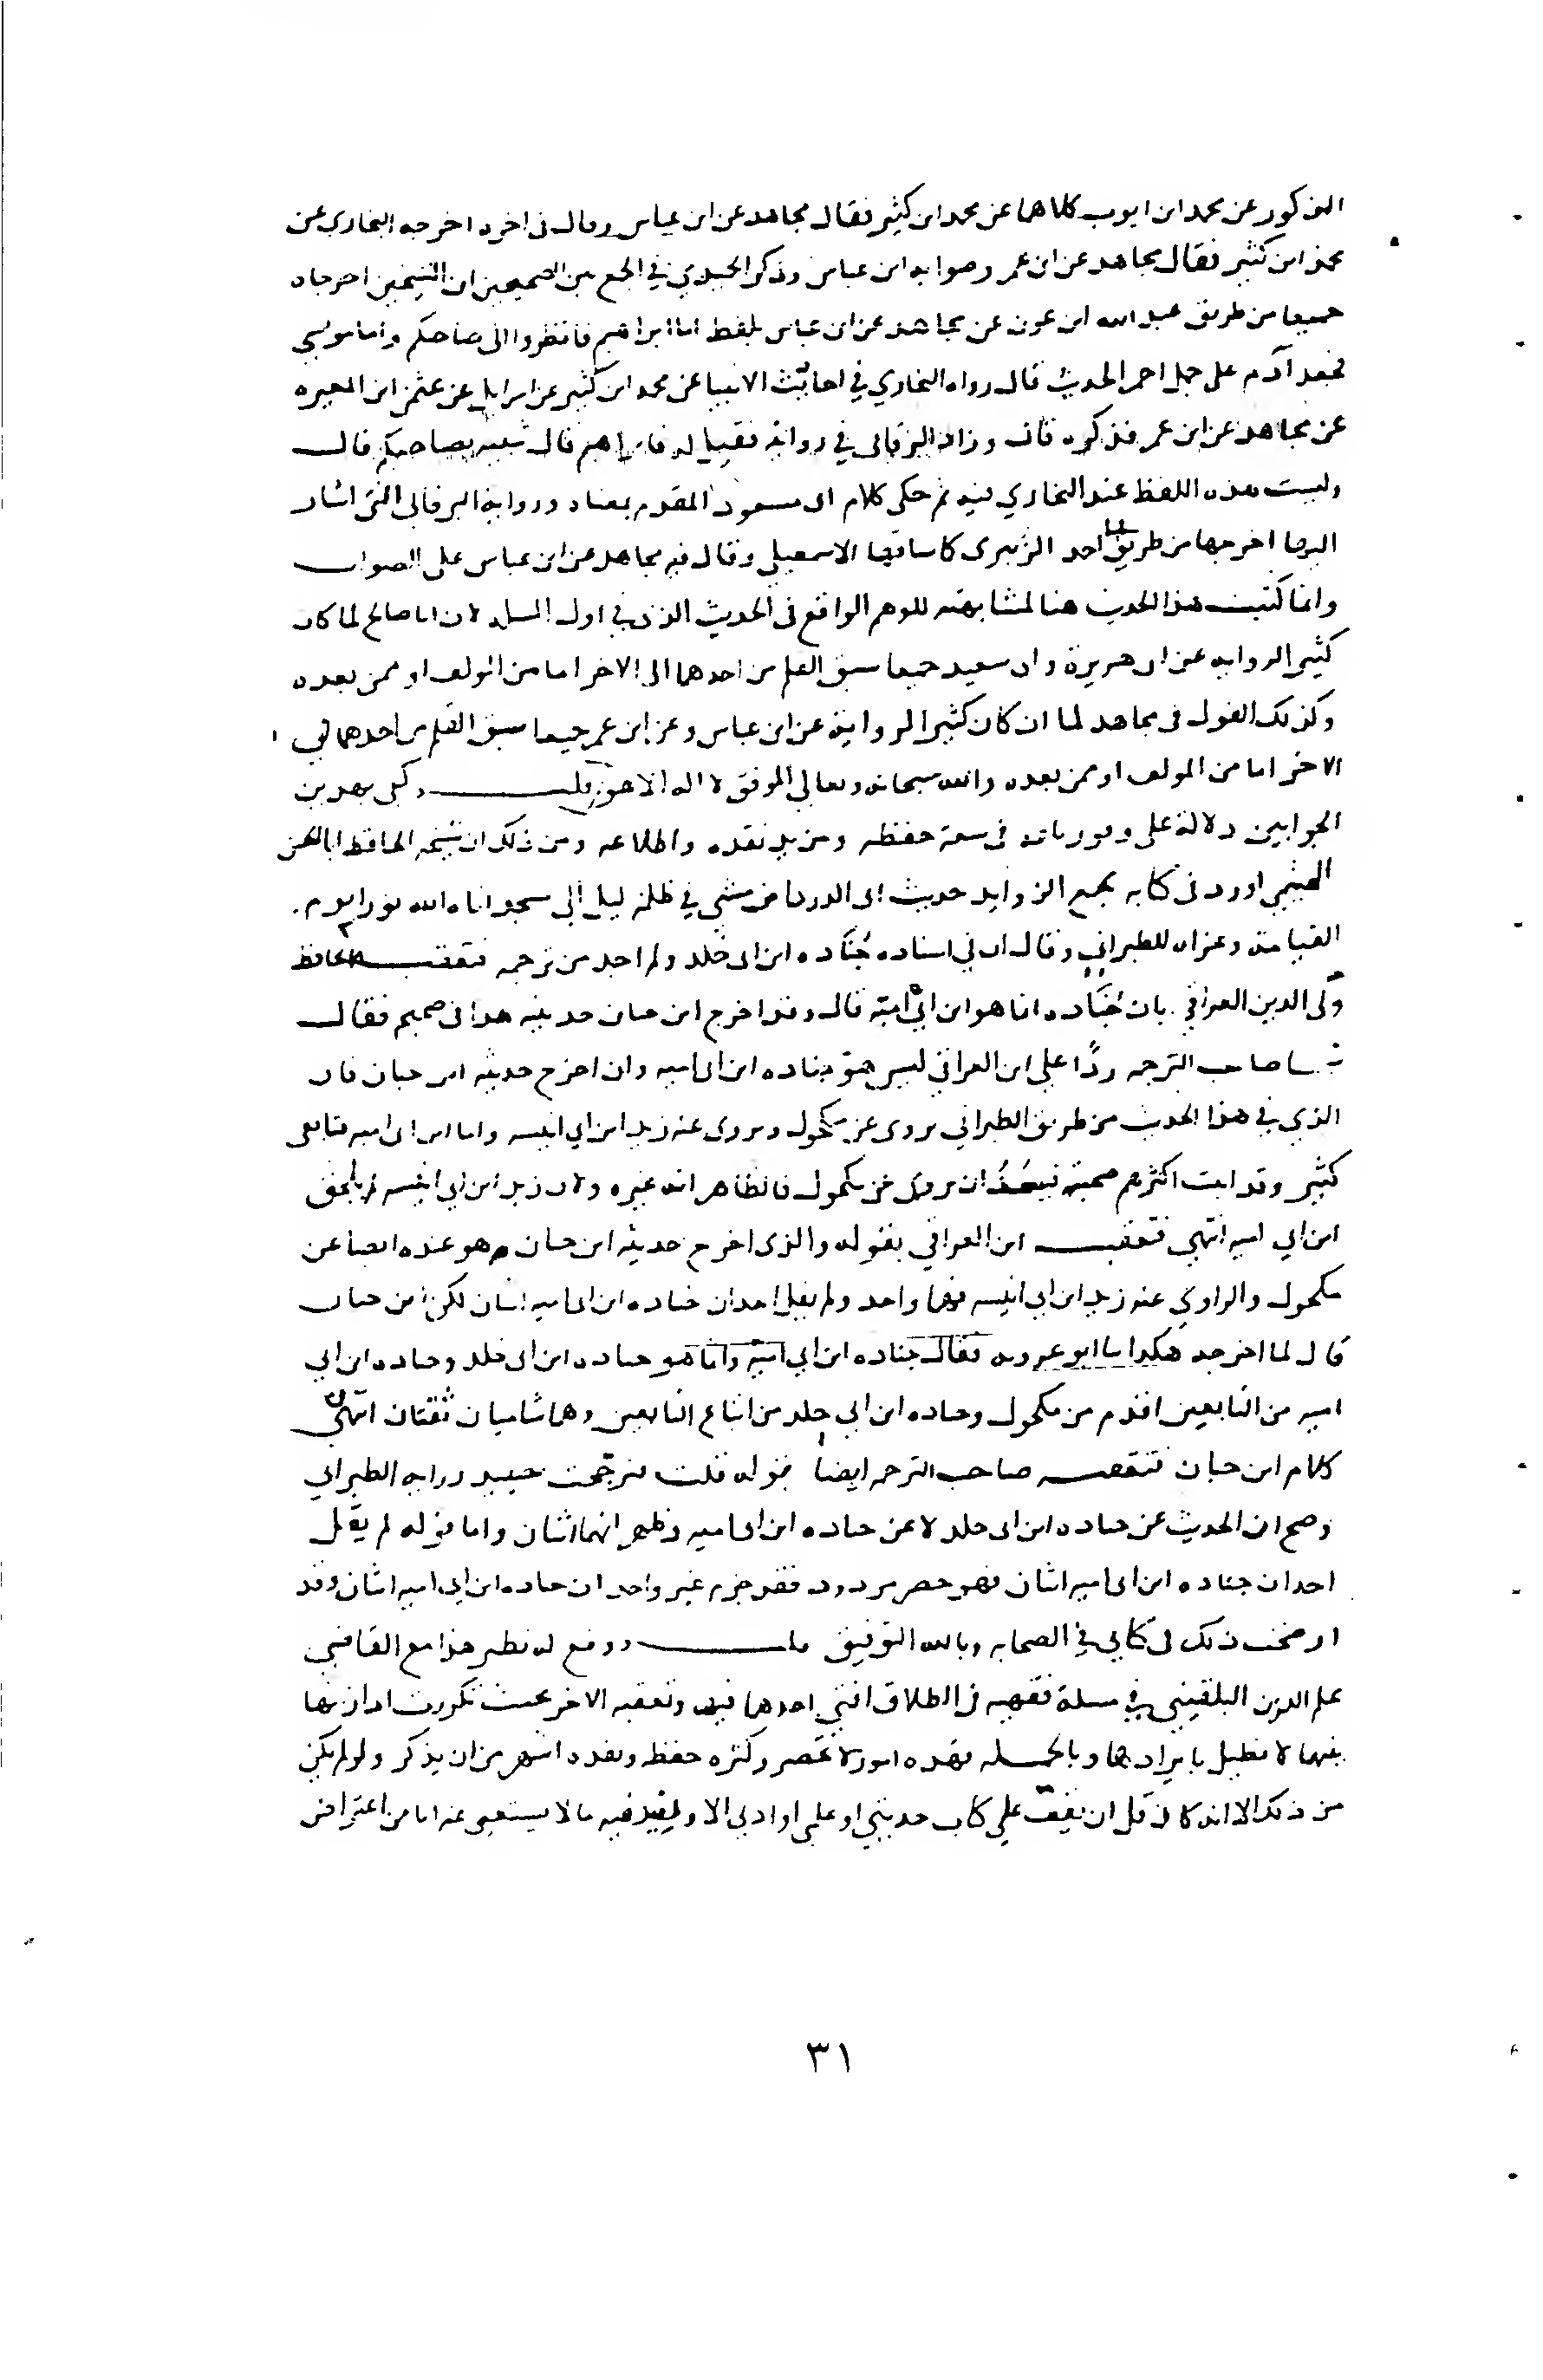 المذكور عن محمد ابن ايوب كلاهما عن محمد ابن كثير فقال مجاهد عن ابن عباس وقال في اخره اخرجه البخاري عن
محمد ابن كثير فقال مجاهد عن ابن عمر وصوابه ابن عباس وذكر الحميدي في الجمع بين الصحيحين ان الشيخين اخرجاه
جميعا من طريق عبد الله ابن عون عن مجاهد عن ابن عباس بلفظ اما ابراهيم فانظروا الى صاحبكم واما موسى
فجعد آدم على جمل احمر الحديث قال رواه البخاري في احاديث الانبيا عن محمد ابن كثير عن اسرايل عن عثمن ابن المغيره
عن مجاهد عن ابن عمر فذكره قال وزاد البرقاني في روايته فقيل له فابراهيم قال شبيه بصاحبكم قال
وليست هذه اللفظ عند البخاري فيه ثم حكى كلام ابى مسعود المقدم بمعناه ورواية البرقاني التي اشار
اليها اخرجها من طريق ابي احمد الزبيرى كما ساقها الاسمعيلي وقال فيه مجاهد عن ابن عباس على الصواب
وانما كتبت هذا الحديث هنا لمشابهته للوهم الواقع في الحديث الذي في اول المسلة لان ابا صالح لما كان
كثير الروايه عن ابى هريرة وابى سعيد جميعا سبق القلم من احدهما الى الاخر اما من المولف او ممن بعده
وكذلك القول في مجاهد لما ان كان كثير الرواية عن ابن عباس وعن ابن عمر جميعا سبق القلم من احدهما الي
الاخر اما من المولف او ممن بعده والله سبحانه وتعالى الموفق لا اله الا هو قلت وكفى بهذين
الجوابين دلالة على وفور مادته في سعة حفظه ومزيد نقده واطلاعه ومن ذلك ان شيخه الحافظ ابا الحسن
الهيثمي اورد في كتابه مجمع الزوايد حديث ابى الدردا من مشى في ظلمة ليل الى مسجد اتاه الله نورا يوم
القيامة وعزاه للطبراني وقال ان في اسناده جُنَاده ابن ابى خلد ولم اجد من ترجمه فتعقبه الحافظ
ولى الدين العراقي بان جُنَاده انما هو ابن ابي امية قال وقد اخرج ابن حبان حديثه هذا في صحيحه فقال
صاحب الترجمه ردًا على ابن العراقي ليس هو جناده ابن ابى اميه وان اخرج حديثه ابن حبان فان
الذي في هذا الحديث من طريق الطبراني يروى عن مكحول ويروى عنه زيد ابن ابي انيسه واما ابن ابى اميه فتابعى
كبير وقد اثبت اكثرهم صحبته فيبعُدُ ان يروى عن مكحول فالظاهر انه غيره ولان زيد ابن ابي انيسه لم يلحق
ابن ابي اميه انتهى فتعقبه ابن العراقي بقوله والذى اخرج حديثه ابن حبان هو عنده ايضا عن
مكحول والراوي عنه زيد ابن ابي انيسه فهما واحد ولم يقل احد ان جناده ابن ابى اميه اثنان لكن ابن حبان
قال لما اخرجه هكذا ابو عروبه فقال جناده ابن ابي امية وانما هو جناده ابن ابى خلد وجناده ابن ابي
اميه من التابعين اقدم من مكحول وجناده ابن ابي خلد من اتباع التابعين وهما شاميان ثقتان انتهى
كلام ابن حبان فتعقبه صاحب الترجمه ايضا بقوله قلت فترجحت حينيد رواية الطبراني
وصح ان الحديث عن جناده ابن ابى خلد لا عن جناده ابن ابى اميه وظهر انهما اثنان واما قوله لم يقل
احد ان جناده ابن ابى اميه اثنان فهو حصر مردود فقد جزم غير واحد ان جناده ابن ابي اميه اثنان وقد
اوضحت ذلك فى كتابي في الصحابه وبالله التوفيق قلت ووقع له نظير هذا مع القاضي
علم الدين البلقيني في مسلة فقهيه في الطلاق افتى احدهما فيها وتعقبه الاخر بحيث تكررت
بينهما لا نطيل بايرادها وبالجمله فهذه امور لا تحصر وكثره حفظه ونقده اشهر من ان يذكر ولو لم يكن
من ذلك الا انه كان قل ان يقف على كتاب حديثي او علمي او ادبي الا ويقيد فيه ما لا يستغنى عنه اما من اعتراض
٣١